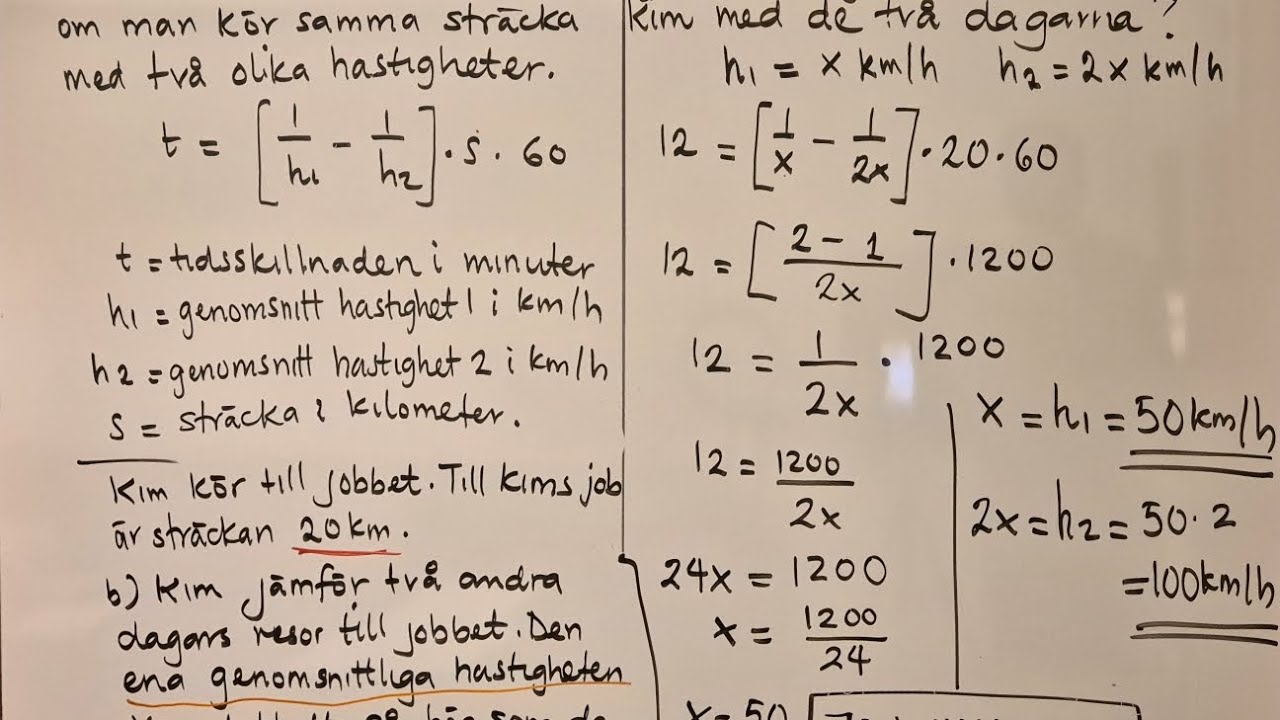 om man kör samma sträcka
med två olika hastigheter.
t = [1/h1 - 1/h2] . s . 60
t = tidsskillnaden i minuter
h1 = genomsnitt hastighet 1 i km/h
h2 = genomsnitt hastighet 2 i km/h
s = sträcka i kilometer.
Kim kör till jobbet. Till Kims job
är sträckan 20 km.
b) Kim jämför två andra
dagars resor till jobbet. Den
ena genomsnittliga hastigheten
Kim med de två dagarna?
h1 = x km/h h2 = 2x km/h
12 = [1/x - 1/2x] . 20 . 60
12 = [2 - 1 / 2x] . 1200
12 = 1/2x . 1200
12 = 1200/2x
24x = 1200
x = 1200/24
x = 50
x = h1 = 50 km/h
2x = h2 = 50 . 2
= 100 km/h